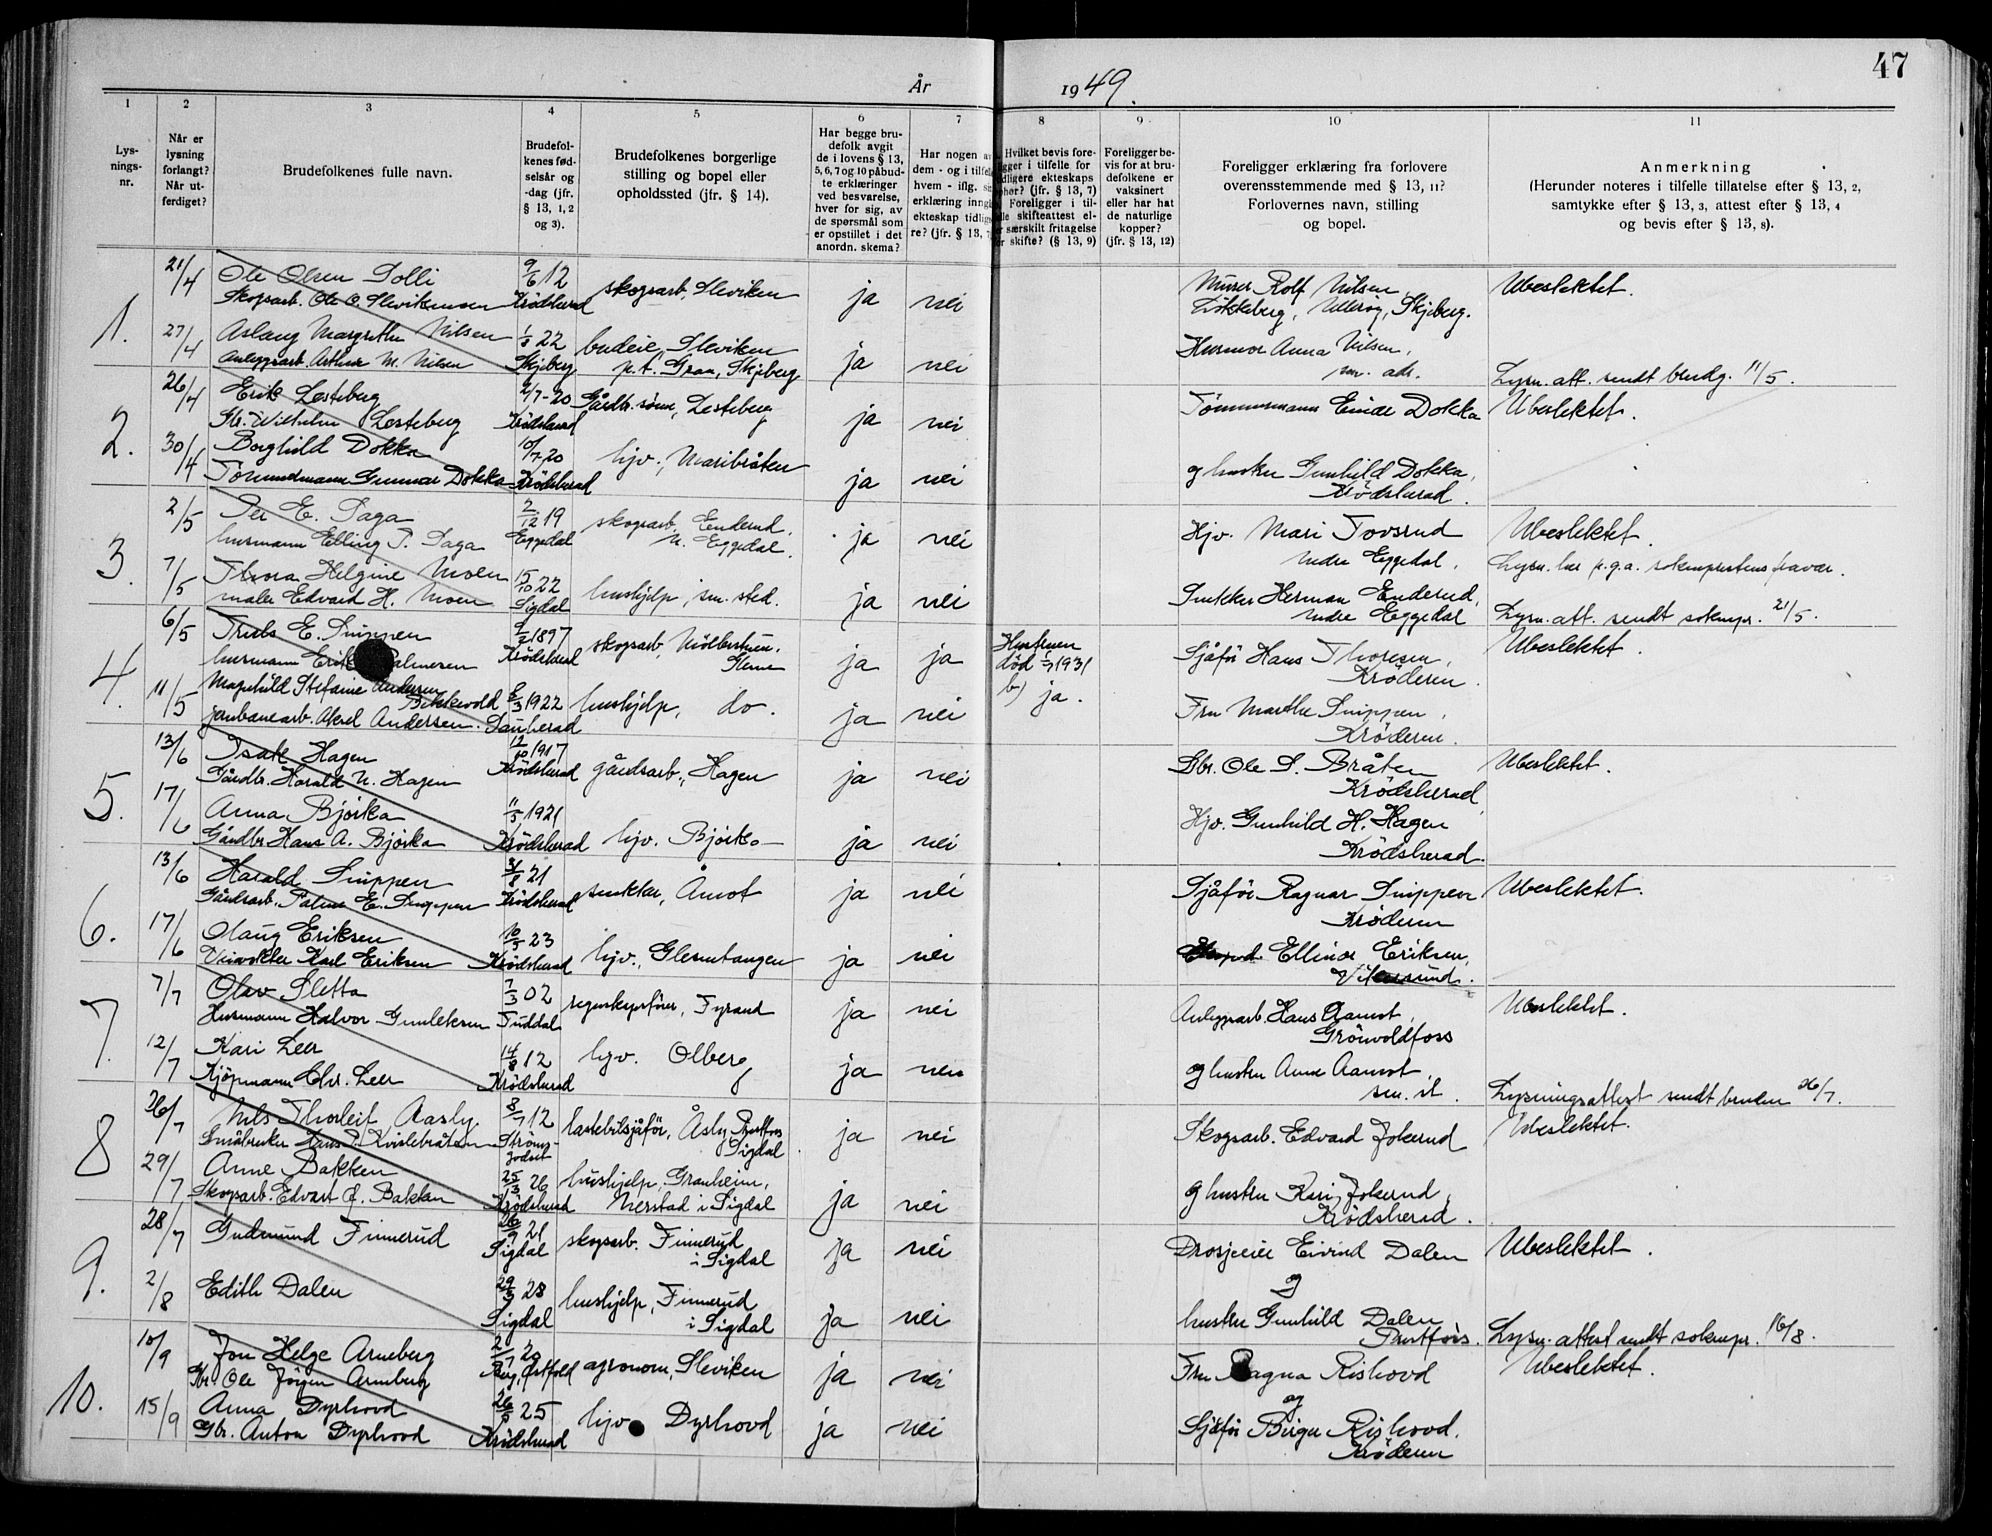 47
År 1949.
1
2
3
4
5
6
7
8
9
10
11
Lys-
nings-
nr.
Når er
lysning
forlangt?
Når ut-
ferdiget?
Brudefolkenes fulle navn.
Brudefol-
kenes fød-
selsår og
-dag (jfr.
§ 13, 1, 2
og 3).
Brudefolkenes borgerlige
stilling og bopel eller
opholdssted (jfr. § 14).
Har begge bru-
defolk avgit
de i lovens § 13,
5, 6, 7 og 10 påbud-
te erklæringer
ved besvarelse,
hver for sig, av
de spørsmål som
er opstillet i det
anordn. skema?
Har nogen av
dem - og i tilfelle
hvem - iflg. sin
erklæring inngått
ekteskap tidlige-
re? (jfr. § 13, 7)
Hvilket bevis fore-
ligger i tilfelle for
tidligere ekteskaps
ophør? (jfr. § 13, 7)
Foreligger i til-
felle skifteattest el-
ler særskilt fritagelse
for skifte? (§ 13, 9)
Foreligger be-
vis for at bru-
defolkene er
vaksinert
eller har hat
de naturlige
kopper?
(jfr. § 13, 12)
Foreligger erklæring fra forlovere
overensstemmende med § 13, 11?
Forlovernes navn, stilling
og bopel.
Anmerkning
(Herunder noteres i tilfelle tillatelse efter § 13, 2,
samtykke efter § 13, 3, attest efter § 13, 4
og bevis efter § 13, 8).
1.
21/4 Ole Olsen Solli 9/6 12 skogsarb. Sleviken ja nei Murer Rolf Nilsen Ubeslektet.
Skogsarb. Ole O. Slevikensen Krødsherad Løkkeberg, Ullerøy, Skjeberg.
27/4 Aslaug Margrethe Nilsen 22 budeie, Sleviken ja nei Husmor Anna Nilsen,
Anleggsarb. Arthur M. Nilsen Skjeberg p.t. Gran, Skjeberg sm. adr. Lysn. att. sendt brudg. 11/5.
2.
26/4 Erik Lesteberg 2/7-20 Gårdbr. sønn, Lesteberg ja nei Tømmermann Einar Dokka Ubeslektet.
Gbr. Wilhelm Lesteberg Krødsherad
30/4 Borghild Dokka 10/7-20 hjv., Maribråten ja nei og hustru Gunhild Dokka,
Tømmermann Gunnar Dokka Krødsherad Krødsherad.
3.
2/5 Per E. Saga 2/12 19 skogsarb. Enderud, ja nei Hjv. Mari Tovsrud Ubeslektet.
husmann Elling P. Saga Eggedal N. Eggedal. Nedre Eggedal. Lysn. her p.g.a. sokneprestens fravær.
7/5 Thora Helgine Moen 15/10 22 hushjelp, sm. sted. ja nei Snekker Herman Enderud,
maler Edvard H. Moen Sigdal Nedre Eggedal Lysn. att. sendt soknepr. 21/5.
4.
6/5 Truls E. Snippen 1897 skogsarb. ja ja Hustruen Sjåfør Hans Thoresen, Ubeslektet.
husmann Erik Palmesen Krødsherad død 1931 Krøderen.
11/5 Magnhild Stefanie Andersen b) ja.
Bekkevold 1922 hushjelp, do. ja nei Fru Marthe Snippen,
jernbanearb. Aksel Andersen. Sauherad Krøderen.
5.
13/6 Isak Hagen 12/10 1917 gårdsarb., Hagen ja nei Gbr. Ole S. Bråten Ubeslektet.
Gårdbr. Harald N. Hagen Krødsherad Krødsherad
17/6 Anna Bjørka 11/5 1921 hjv. Bjørka ja nei Hjv. Gunhild H. Hagen
Gårdbr. Hans A. Bjørka Krødsherad Krødsherad.
6.
13/6 Harald Snippen 3/8 21 snekker, Åmot ja nei Sjåfør Ragnar Snippen Ubeslektet.
Gårdsarb. Palme E. Snippen Krødsherad Krøderen
17/6 Olaug Eriksen 10/5 23 hjv., Glesnetangen ja nei Ellinor Eriksen,
Veivokter Karl Eriksen Krødsherad Vikersund.
7.
7/7 Olav Sletta 7/3 02 regnskapsfører, Fyrand ja nei Anleggsarb. Hans Aamot, Ubeslektet.
Husmann Halvor Gunleksen Tuddal Grønvoldfoss
12/7 Kari Leer 14/8 12 hjv. Olberg ja nei og hustru Anne Aamot,
Kjøpmann Chr. Leer Krødsherad sm. st. Lysningsattest sendt bruden 26/7.
8
26/7 Nils Thorleif Aasly 8/7 12 lastebilsjåfør, Åsly, Prestfoss ja nei Skogsarb. Edvard Jokerud Ubeslektet.
Småbruker Kvislebråten Strøms- Sigdal.
godset
29/7 Anne Bakken 25/3 26 hushjelp, Granheim, ja nei og hustru Kari Jokerud,
Skogsarb. Edvart J. Bakken Krødsherad Nerstad i Sigdal Krødsherad.
9.
28/7 Gudmund Finnerud 26/9 21 skogsarb. Finnerud ja nei Drosjeeier Eivind Dalen Ubeslektet.
Sigdal i Sigdal og
2/8 Edith Dalen 29/3 28 hushjelp, Finnerud ja nei hustru Gunhild Dalen
Sigdal i Sigdal Prestfoss. Lysn. attest sendt soknepr. 16/8.
10.
10/9 Jon Helge Arneberg 2/7 20 agronom, Sleviken ja nei Fru Ragna Rishovd Ubeslektet.
Gbr. Ole Jörgen Arneberg Berg, Østfold og
15/9 Anna Dyrhovd 26/ 25 hjv. Dyrhovd ja nei Sjåfør Birger Rishovd.
Gbr. Anton Dyrhovd Krødsherad Krøderen